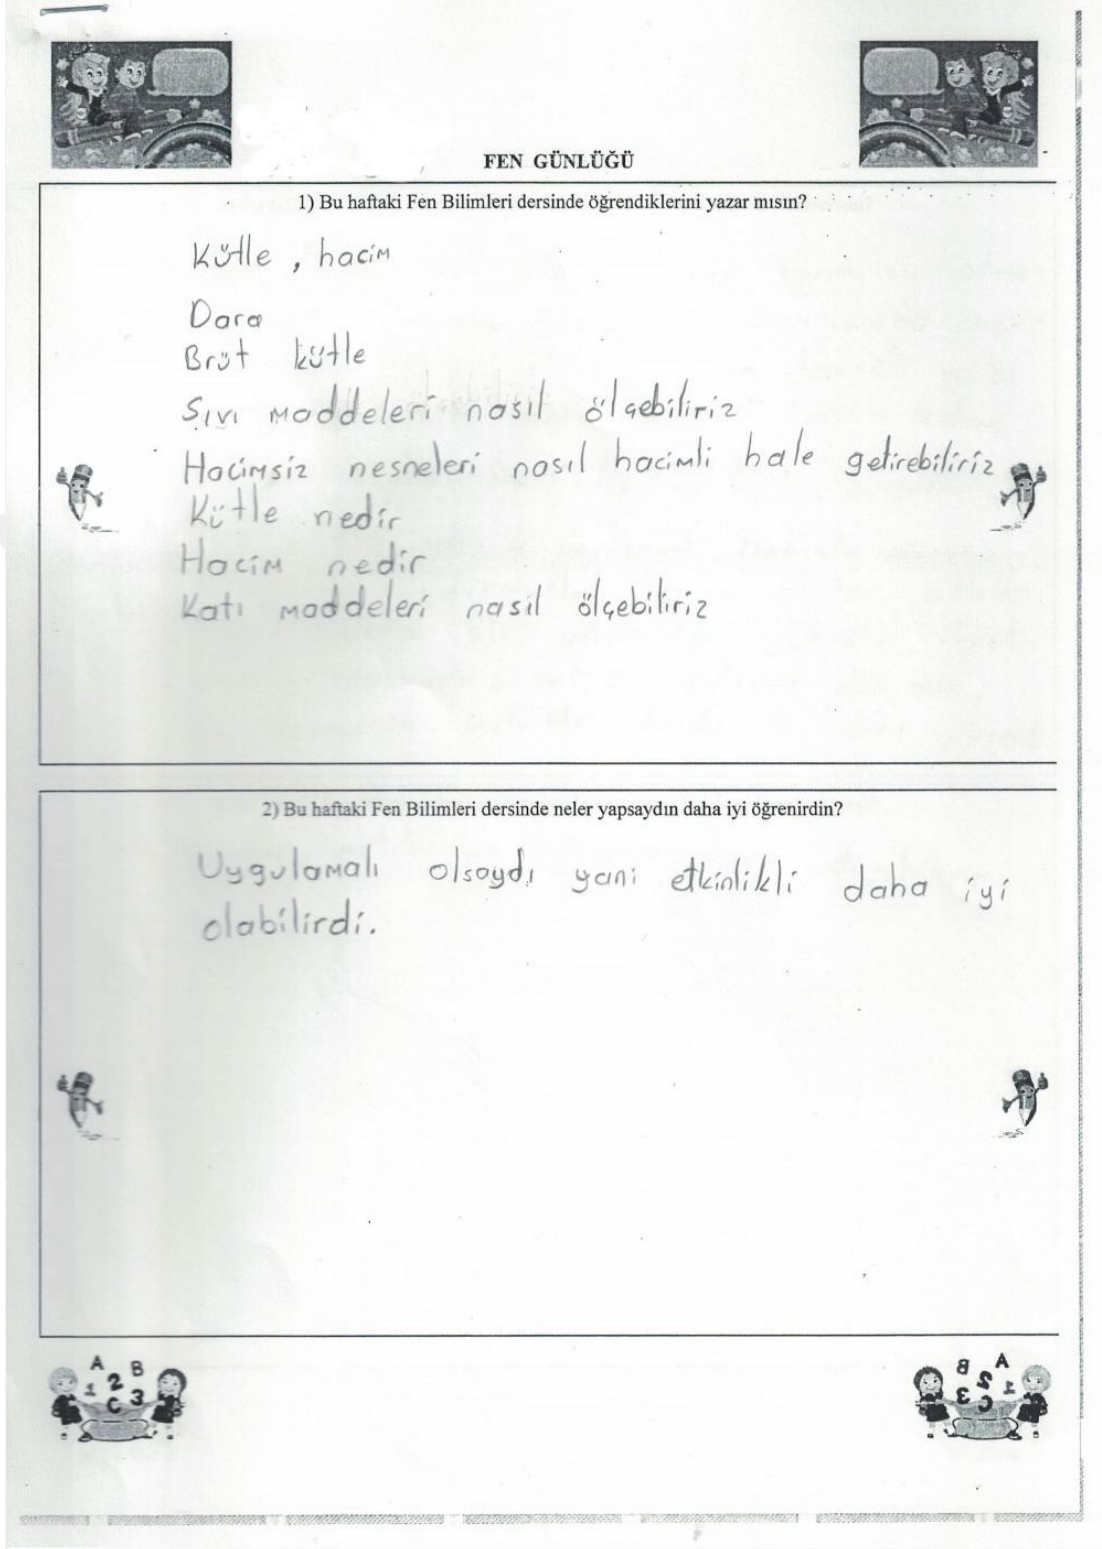 FEN GÜNLÜĞÜ
1) Bu haftaki Fen Bilimleri dersinde öğrendiklerini yazar mısın?
Kütle , hacim
Dara
Brüt kütle
Sıvı maddeleri nasıl ölçebiliriz
Hacimsiz nesneleri nasıl hacimli hale getirebiliriz
Kütle nedir
Hacim nedir
Katı maddeleri nasıl ölçebiliriz
2) Bu haftaki Fen Bilimleri dersinde neler yapsaydın daha iyi öğrenirdin?
Uygulamalı olsaydı yani etkinlikli daha iyi
olabilirdi.
A B
1 2
C 3
A B
1 2
C 3